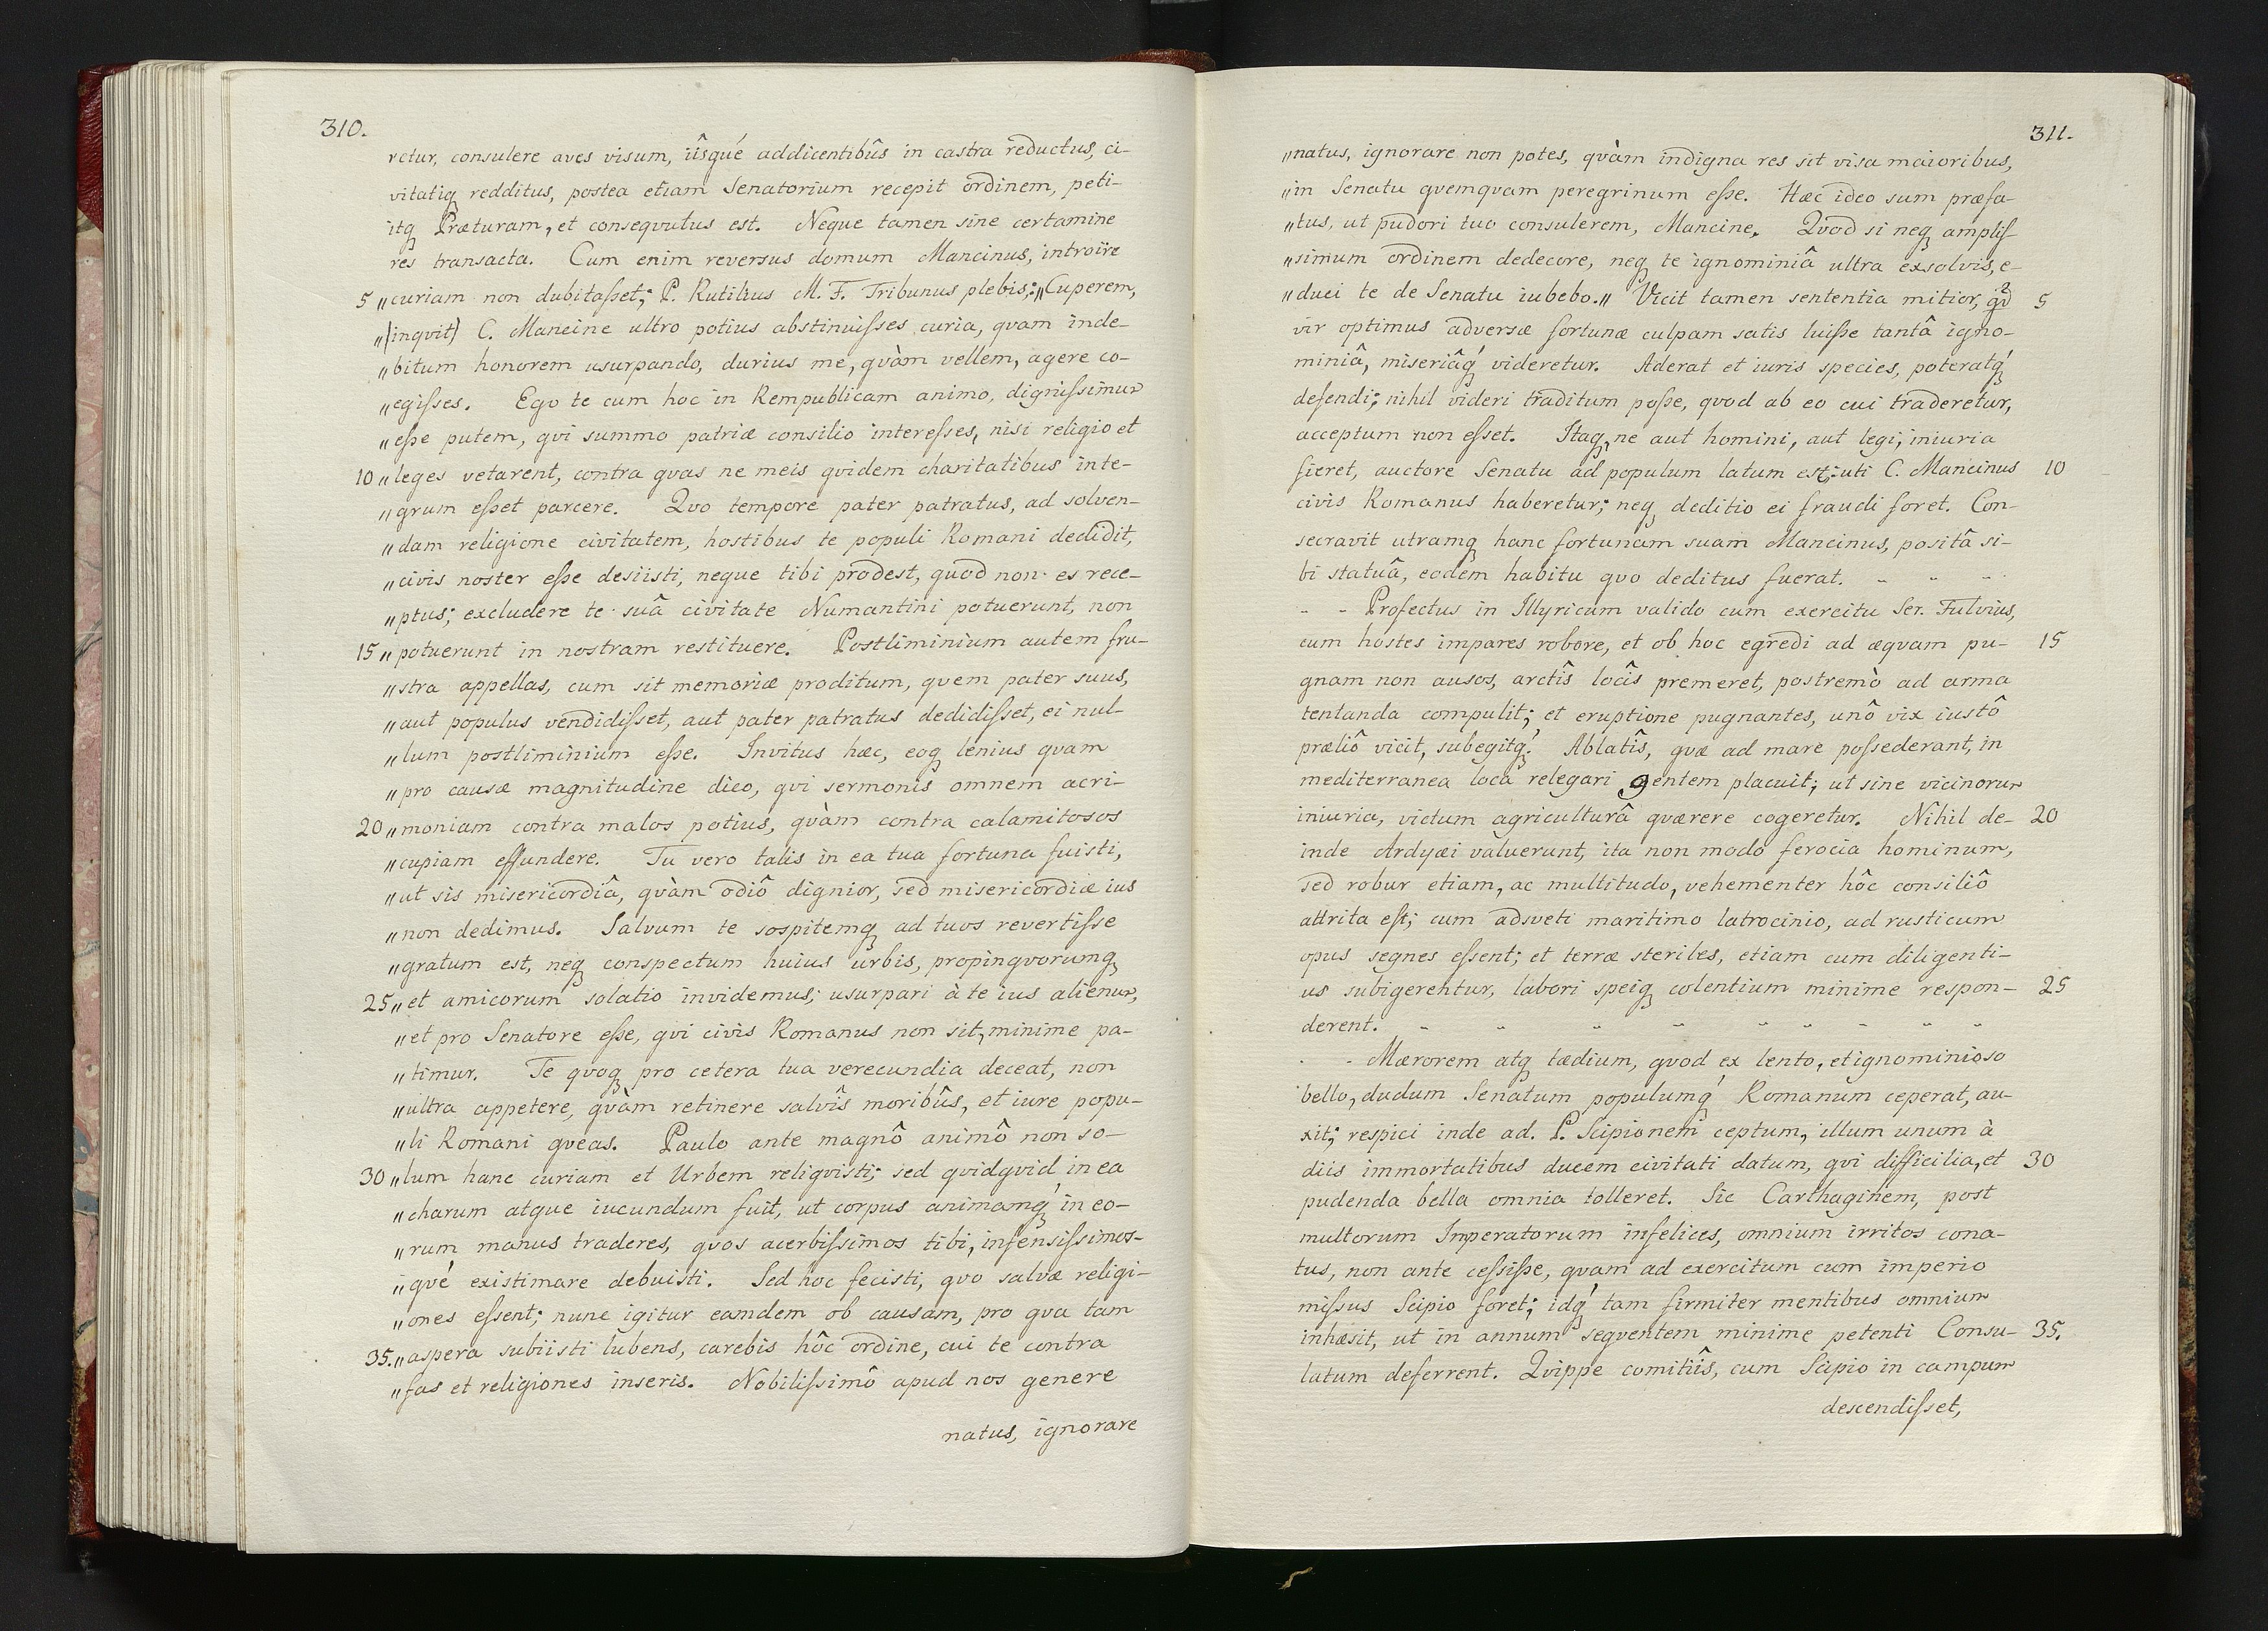 310.
retur, consulere aves visum, iîsqué addicentibûs in castra reductus, ci-
vitatiq redditus, postea etiam Senatorium recepit ordinem, peti-
itq Præturam, et conseqvutus est. Neque tamen sine certamine
res transacta. Cum enim reversus domum Mancinus, introire
5 „curiam non dubitaſset; P. Rutilius M. F. Tribunus plebis; „Cuperem,
„(inqvit) C. Mancine ultro potius abstinuiſses curia, qvam inde-
„bitum honorem usurpando, durius me, qvàm vellem, agere co-
„egiſses. Ego te cum hoc in Rempublicam animo, digniſsimum
„eſse putem, qvi summo patriæ consilio intereſses, nisi religio et
10 „leges vetarent, contra qvas ne meis qvidem charitatibus inte-
„grum eſset parcere. Qvo tempore pater patratus, ad solven-
„dam religione civitatem, hostibus te populi Romani dedidit,
„civis noster eſse desiisti, neque tibi prodest, quod non es rece-
„ptus; excludere te suâ civitate Numantini potuerunt, non
15 „potuerunt in nostram restituere. Postliminium autem fru-
„stra appellas, cum sit memoriæ proditum, qvem pater suus,
„aut populus vendidiſset, aut pater patratus dedidiſset, ei nul-
„lum postliminium eſse. Invitus hæc, eoq lenius qvam
„pro causæ magnitudine dico, qvi sermonis omnem acri-
20 „moniam contra malos potius, qvàm contra calamitosos
„cupiam effundere. Tu vero talis in ea tua fortuna fuisti,
„ut sis misericordiâ, qvàm odiô dignior, sed misericordiæ ius
„non dedimus. Salvum te sospitemq ad tuos revertiſse
„gratum est, neq conspectum huius urbis, propinqvorumq
25 „et amicorum solatio invidemus; usurpari à te ius alienum,
„et pro Senatore eſse, qvi civis Romanus non sit, minime pa-
„timur. Te qvoq pro cetera tua verecundia deceat, non
„ultra appetere, qvàm retinere salvîs moribûs, et iure popu-
„li Romani qveas. Paulo ante magnô animô non so-
30 „lum hanc curiam et Urbem reliqvisti; sed qvidqvid in ea
„charum atque iucundum fuit, ut corpus animamq́ in eo-
„rum manus traderes, qvos acerbiſsimos tibi, infensiſsimos-
„qvé existimare debuisti. Sed hoc fecisti, qvo salvæ religi-
„ones eſsent; nunc igitur eamdem ob causam, pro qva tam
35. „aspera subiisti lubens, carebis hôc ordine, cui te contra
„fas et religiones inseris. Nobiliſsimô apud nos genere
natus, ignorare
311.
„natus, ignorare non potes, qvàm indigna res sit visa maioribus,
„in Senatu qvemqvam peregrinum eſse. Hæc ideo sum præfa-
„tus, ut pudori tuo consulerem, Mancine. Qvod si neq ampliſ-
„simum ordinem dedecore, neq te ignominiâ ultra exsolvis, e-
„duci te de Senatu iubebo.„ Vicit tamen sententia mitior, qd 5
vir optimus adversæ fortunæ culpam satis luiſse tantâ igno-
miniâ, miseriâq́ videretur. Aderat et iuris species, poteratq́
defendi; nihil videri traditum poſse, qvod ab eo cui traderetur,
acceptum non eſset. Itaq, ne aut homini, aut legi, iniuria
fieret, auctore Senatu ad populum latum est; uti C. Mancinus 10
civis Romanus haberetur; neq deditio ei fraudi foret. Con-
secravit utramq hanc fortunam suam Mancinus, positâ si-
bi statuâ, eodem habitu qvo deditus fuerat. - - -
- - Profectus in Illyricum valido cum exercitu Ser. Fulvius,
cum hostes impares robore, et ob hoc egredi ad æqvam pu- 15
gnam non ausos, arctîs locîs premeret, postremò ad arma
tentanda compulit; et eruptione pugnantes, unô vix iustô
præliô vicit, subegitq́. Ablatîs, qvæ ad mare poſsederant, in
mediterranea loca relegari gentem placuit; ut sine vicinorum
iniuria, victum agriculturâ qværere cogeretur. Nihil de- 20
inde Ardyæi valuerunt, ita non modo ferocia hominum,
sed robur etiam, ac multitudo, vehementer hôc consiliô
attrita eſt; cum adsveti maritimo latrocinio, ad rusticum
opus segnes eſsent; et terræ steriles, etiam cum diligenti-
us subigerentur, labori speiq colentium minime respon- 25
derent. - - - - - - - - -
- - Mærorem atq tædium, qvod ex lento, et ignominioso
bello, dudum Senatum populumq́ Romanum ceperat, au-
xit; respici inde ad. P. Scipionem ceptum, illum unum à
diis immortalibus ducem civitati datum, qvi difficilia, et 30
pudenda bella omnia tolleret. Sic Carthaginem, post
multorum Imperatorum infelices, omnium irritos cona-
tus, non ante ceſsiſse, qvam ad exercitum cum imperio
miſsus Scipio foret; idq́ tam firmiter mentibus omnium
inhæsit, ut in annum seqventem minime petenti Consu- 35.
latum deferrent. Qvippe comitiîs, cum Scipio in campum
descendiſset,